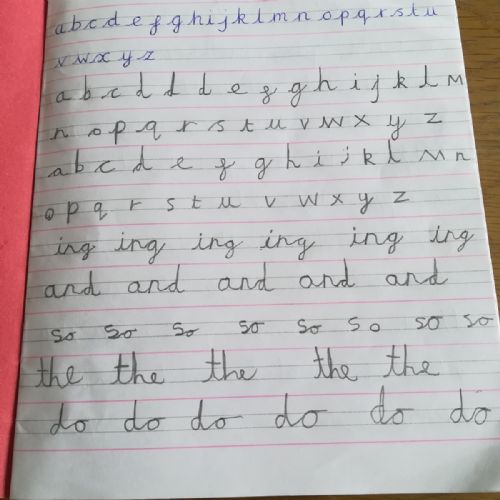 a b c d e f g h i j k l m n o p q r s t u
v w x y z
a b c d d d e f g h i j k l m
n o p q r s t u v w x y z
a b c d e f g h i j k l m n
o p q r s t u v w x y z
ing ing ing ing ing ing
and and and and and
so so so so so so so so
the the the the the
do do do do do do